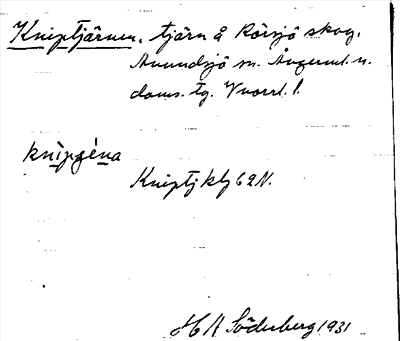 Kniptjärnen, tjärn å Rörsjö skog,
Anundsjö sn. Ångerml. n.
doms. tg. Vnorrl. l.
knìpǥéna
Kniptj kbl 62 N.
H A Söderberg 1931